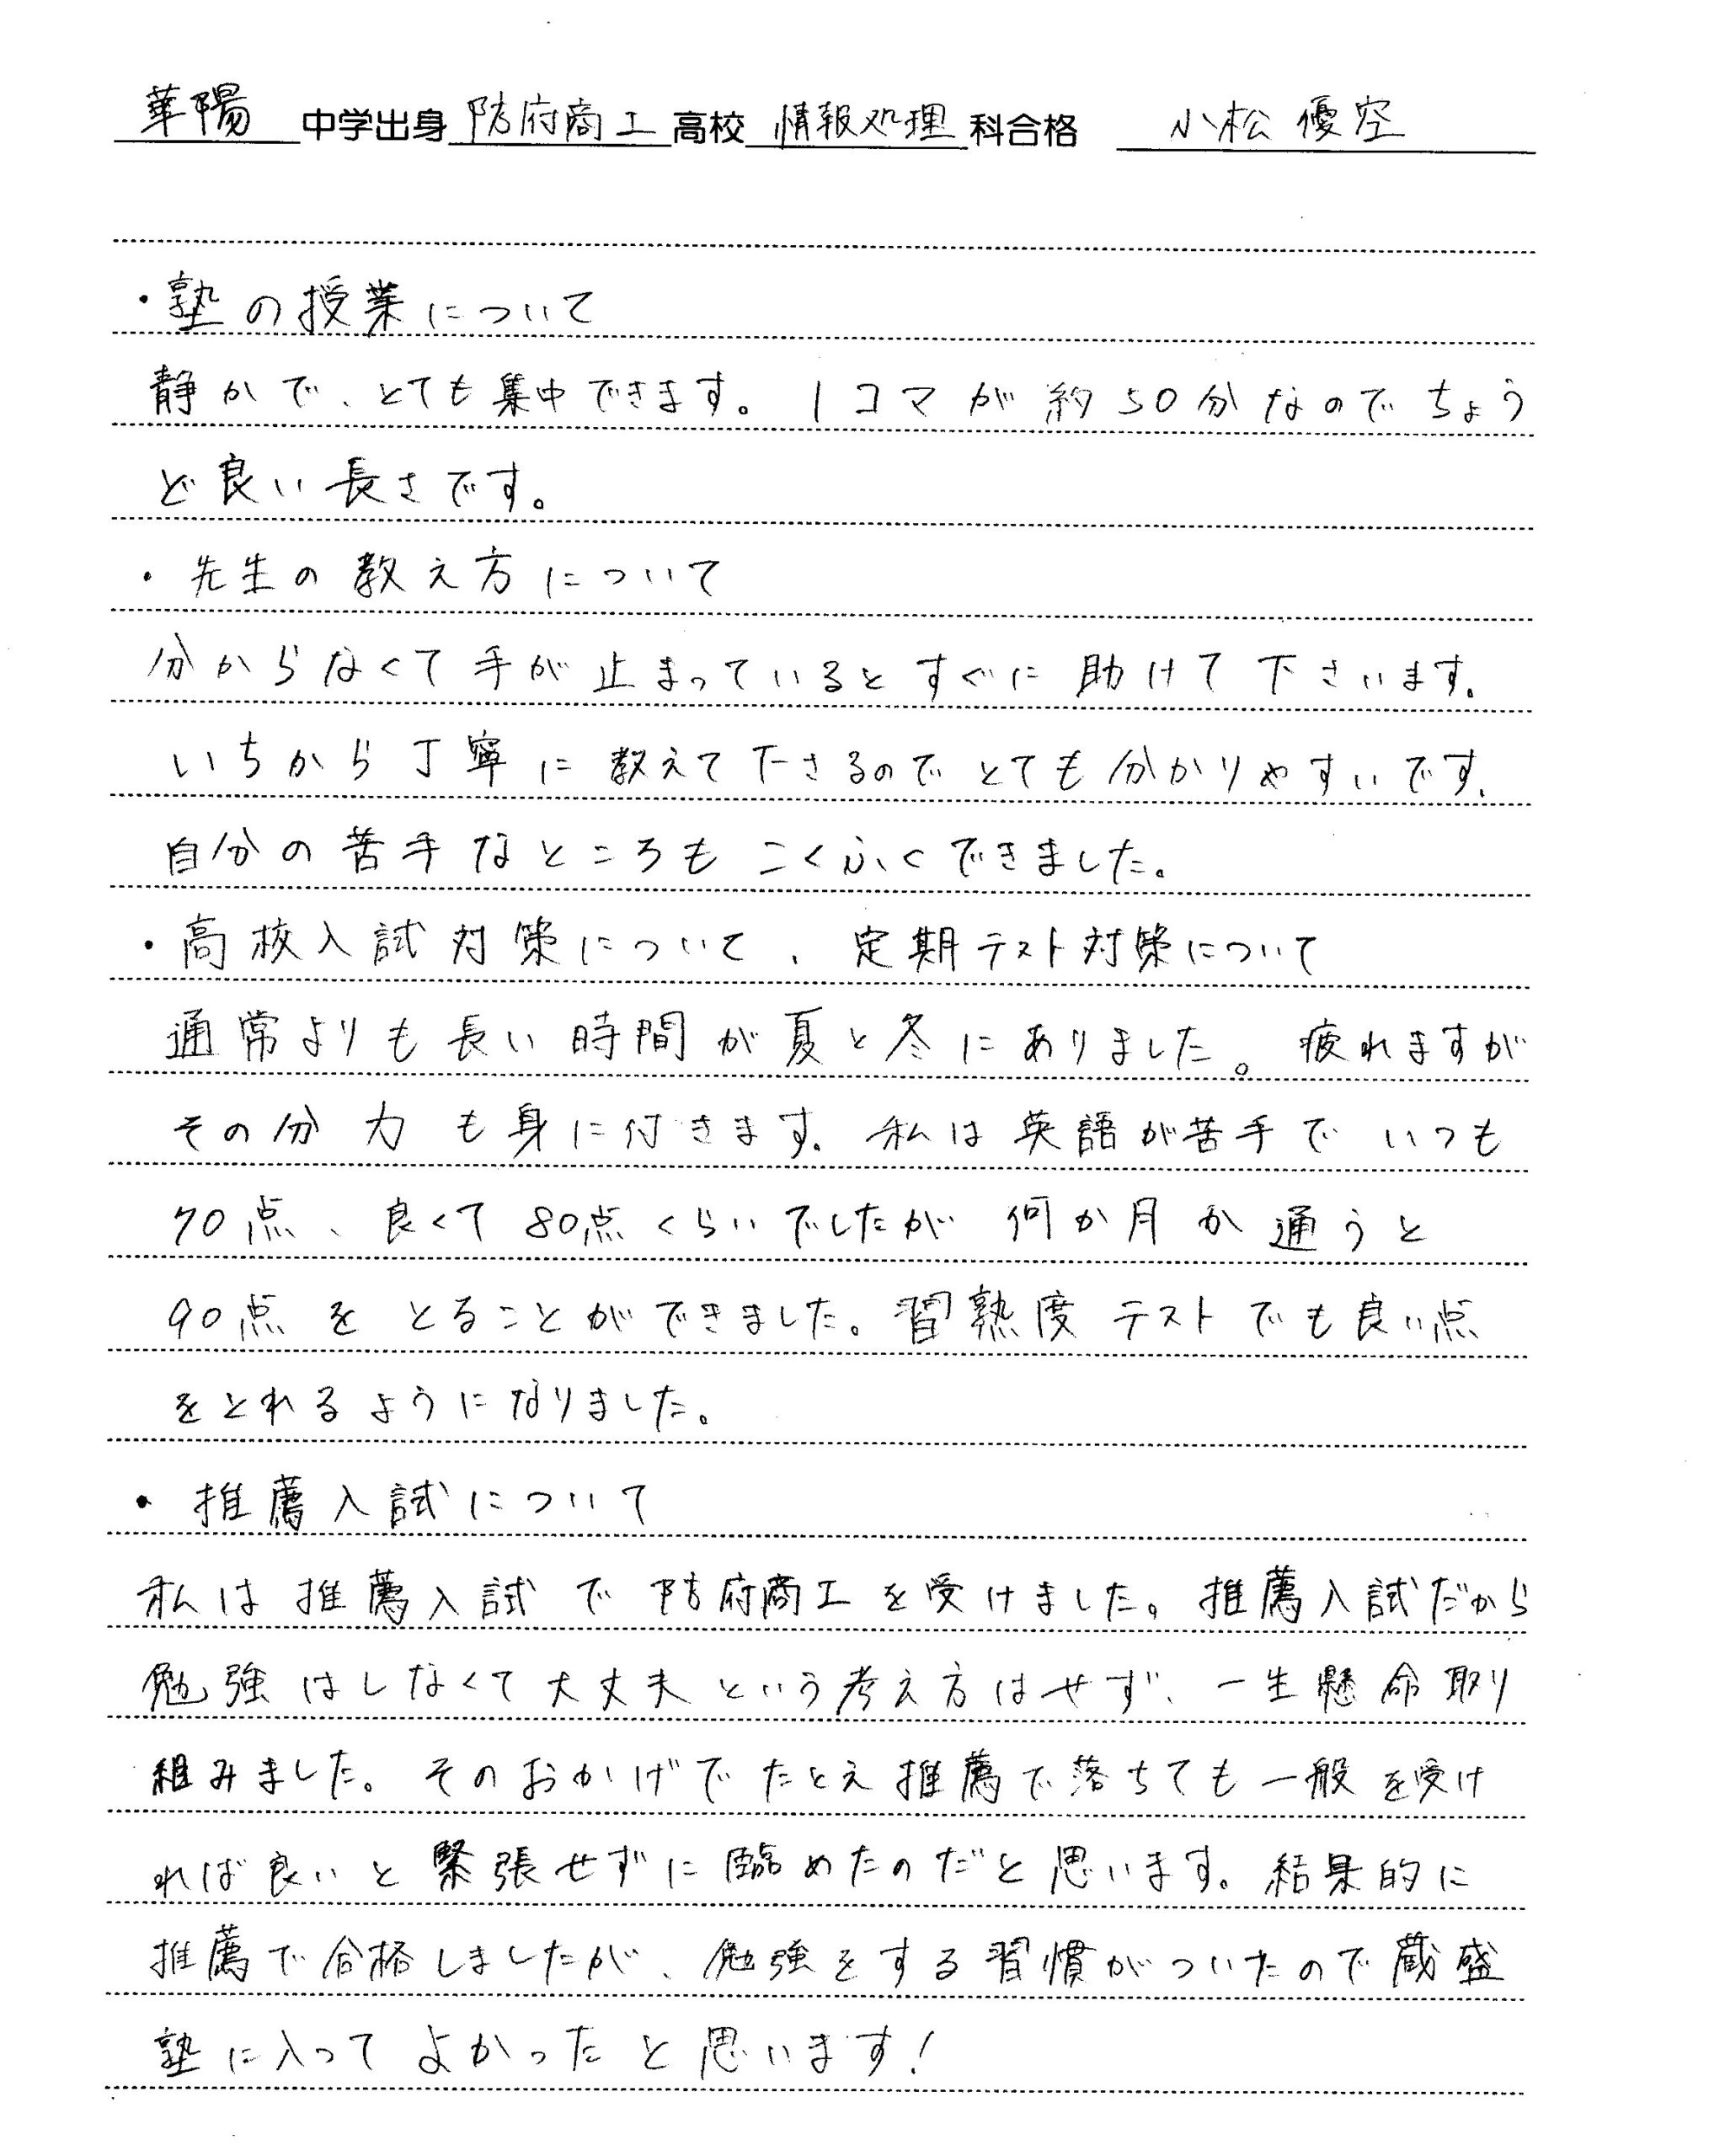 華陽 中学出身 防府商工 高校 情報処理 科合格 小松 優空
・塾の授業について
静かで、とても集中できます。1コマが約50分なのでちょう
ど良い長さです。
・先生の教え方について
分からなくて手が止まっているとすぐに助けて下さいます。
いちから丁寧に教えて下さるのでとても分かりやすいです。
自分の苦手なところもこくふくできました。
・高校入試対策について、定期テスト対策について
通常よりも長い時間が夏と冬にありました。疲れますが
その分力も身に付きます。私は英語が苦手でいつも
70点、良くて80点くらいでしたが何か月か通うと
90点をとることができました。習熟度テストでも良い点
をとれるようになりました。
・推薦入試について
私は推薦入試で防府商工を受けました。推薦入試だから
勉強はしなくて大丈夫という考え方はせず、一生懸命取り
組みました。そのおかげでたとえ推薦で落ちても一般を受け
れば良いと緊張せずに臨めたのだと思います。結果的に
推薦で合格しましたが、勉強をする習慣がついたので蔵盛
塾に入ってよかったと思います!